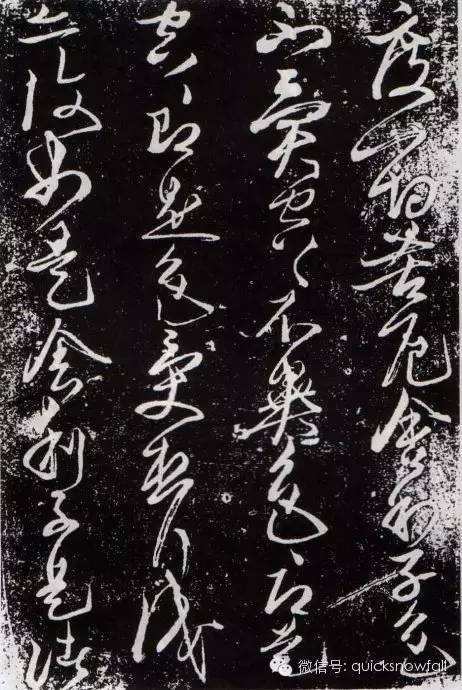 度一切苦厄舍利子色
不異空々不異色々即是
空々即是色受想行識
亦復如是舍利子是諸
微信号: quicksnowfall